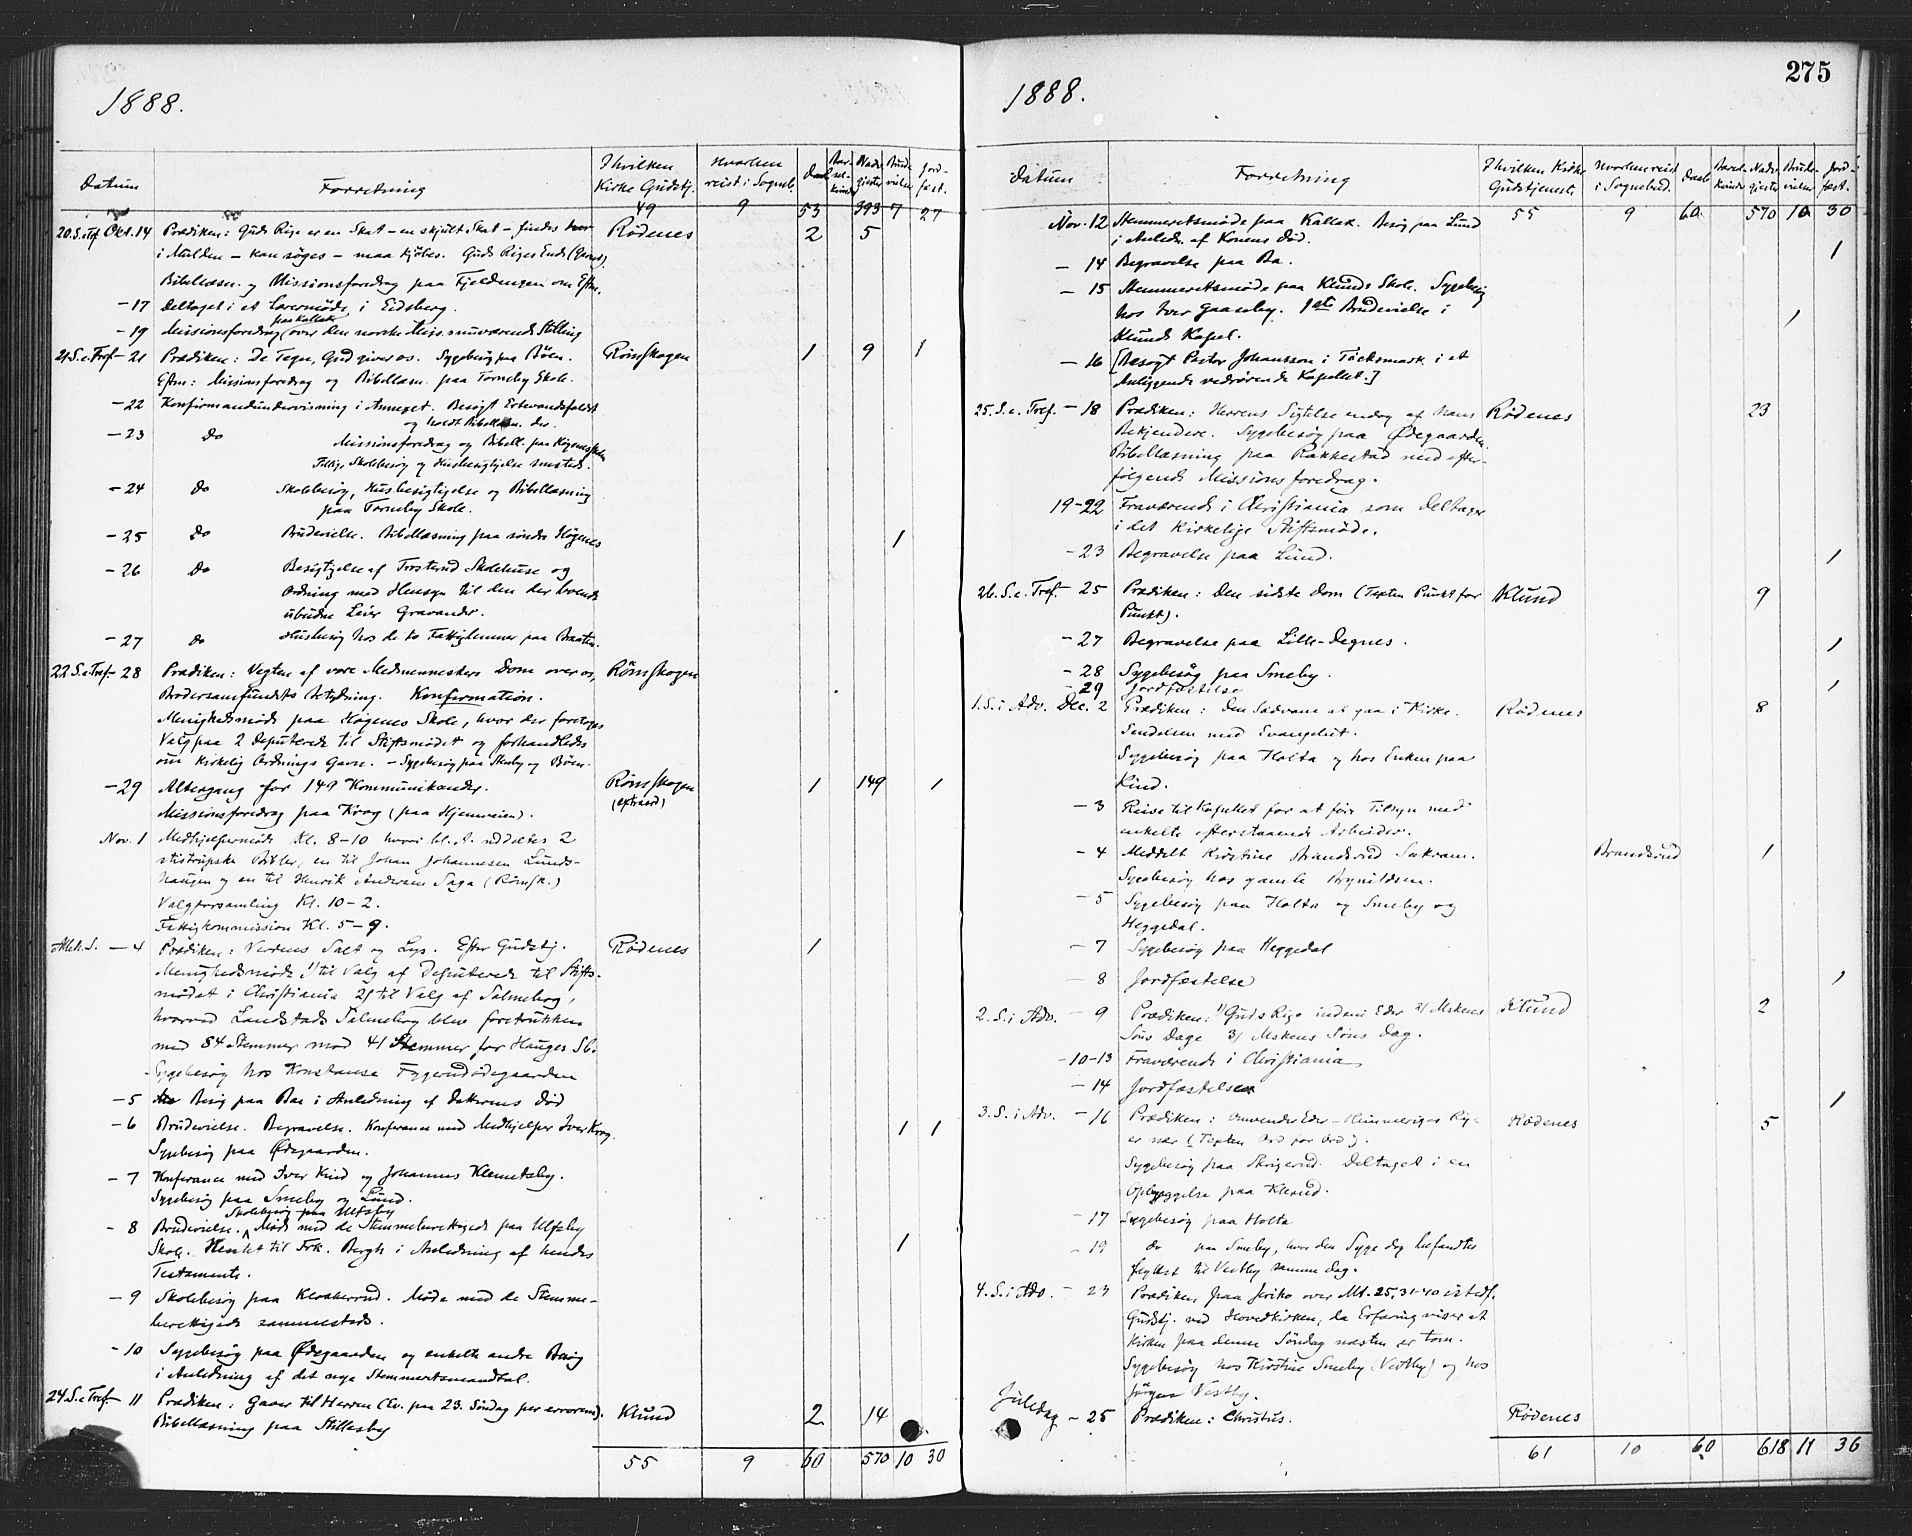 1888.
Datum
Forretning
I hvilken Kirke Gudstj.
Hvorhen reist i Sogneb.
Daab
Barselkvinder
Nadvgjester
Brudevielser
Jordfæst.
49 9 53 393 7 27
20.S.e.Tref. Okt. 14 Prædiken: Guds Rige er en Skat - en skjult Skat - findes hvor Rødenes 2 5
i Mulden - kan søges - maa kjøbes. Guds Riges Ende
Bibellæsn. og Missionsforedrag paa Fjeldengen om Eftm.
- 17 Deltaget i et Lærermøde i Eidsberg.
paa Kallak
- 19 Missionsforedrag over den norske Miss. nuværende Stilling
21 S.e.Tref - 21 Prædiken: De Tegn, Gud giver os. Sygebesøg paa Böen. Römskogen 1 9 1
Eftm: Missionsforedrag og Bibellæsn. paa Torneby Skole.
- 22 Konfirmandundervisning i Annexet. Besøgt
og holdt Bibellæsn. der.
- 23 Do Missionsforedrag og Bibell. paa
Skolebesøg og Husbesigtigelse sammesteds.
- 24 Do Skolebesøg, Husbesigtigelse og Bibellæsning
paa Torneby Skole.
- 25 Do Brudevielse. Bibellæsning paa söndre Högenes 1
- 26 Do Besigtigelse af Trosterud Skolehuse og
Ordning med Hensyn til den der boende
ubudne Leier Gravander.
- 27 Do Husbesøg hos de to Fattiglemmer paa Braaten.
22 S.e.Tref - 28 Prædiken: Vegten af vore Medmenneskers Dom over os, Römskogen
Brodersamfundets Betydning. Konfirmation.
Menighedsmøde paa Högenes Skole, hvor der foretoges
Valg paa 2 Deputerede til Stiftsmödet og forhandledes
om Kirkelig Ordnings Gavn. - Sygebesøg paa Skuby og Böen.
- 29 Altergang for 149 Kommunikander. Römskogen 1 149 1
Missionsforedrag paa Krog (paa Hjemveien). (extraord)
Nov. 1 Medhjælpermøde Kl. 8-10 hvori bl. A. uddeltes 2
stistrupske Bibler, en til Johan Johannesen Lunds-
haugen og en til Henrik Andersen Saga (Römsk.)
Valgforsamling Kl. 10-2.
Fattigkommission Kl. 5-9.
Alleh.S. - 4 Prædiken: Verdens Salt og Lys. Efter Gudstj. Rødenes 1
Menighedsmøde 1) til Valg af Deputerede til Stifts-
mødet i Christiania 2) til Valg af Salmebog,
hvorved Landstads Salmebog blev foretrukken
med 84 Stemmer mod 41 Stemmer for Hauges Sb.
Sygebesøg hos Konstanse Fygerudödegaarden
- 5 Besøg paa Bae i Anledning af Død
- 6 Brudevielse. Begravelse. Konferance med Medhjelper Iver Krog. 1 1
Sygebesøg paa Ødegaarden.
- 7 Konferance med Iver Kind og Johannes Klemetsby.
Sygebesøg paa Smeby og Lund.
Skolebesøg paa Ulfsby
- 8 Brudevielse. Møde med de Stemmeberettigede paa Ulfsby
Skole. Hentet til Frk. Bergh i Anledning af hendes 1
Testamente.
- 9 Skolebesøg paa Kloakerrud. Møde med de Stemme-
berettigede sammesteds.
- 10 Sygebesøg paa Ødegaarden og enkelte andre Besøg
i Anledning af det nye Stemmeretsmandtal.
24 S.e.Tref - 11 Prædiken: Gaver til Herren (Ev. paa 23. Söndag per errorem). Klund 2 14
Bibellæsning paa Stillesby
55 9 60 570 10 30
275
1888.
Datum
Forretning
I hvilken Kirke Gudstjeneste
Hvorhen reist i Sognebud.
Daab
Barselkvinder
Nadvgjester
Brudevielser
Jordfæst.
55 9 60 570 10 30
Nov. 12 Stemmeretsmøde paa Kallak. Besøg paa Lund
i Anledn. af Konens Död.
- 14 Begravelse paa Ba. 1
- 15 Stemmeretsmøde paa Klunds Skole. Sygebesøg
hos Iver Gaaseby. 1ste Brudevielse i 1
Klunds Kapel.
- 16 [Besøgt Pastor Johansson i Töcksmark i et
Anliggende vedrørende Kapellet.]
25.S.e. Tref. - 18 Prædiken: Herrens Sigtelse endog af hans Rødenes 23
Bekjendere. Sygebesøg paa Ødegaarden.
Bibellæsning paa Rakkestad med efter-
følgende Missionsforedrag.
19-22 Fraværende i Christiania som Deltager
i det kirkelige Stiftsmøde.
- 23 Begravelse paa Lund. 1
26.S.e. Tref. - 25 Prædiken: Den sidste Dom (Texten Punkt for Klund 9
Punkt).
- 27 Begravelse paa Lille-Degnes. 1
- 28 Sygebesøg paa Smeby.
- 29 Jordfæstelse 1
1.S.i Adv. Dec. 2 Prædiken: Den Sædvane at gaa i Kirke. Rødenes 8
Sendelsen med Evangeliet.
Sygebesøg paa Holta og hos Enken paa
Kind.
- 3 Reise til Kapellet for at føre Tilsyn med
enkelte efterstaaende Arbeider.
- 4 Meddelt Kirstine Brandsrud Sakram. Brandsrud 1
Sygebesøg hos gamle Brynildsen.
- 5 Sygebesøg paa Holta og Smeby og
Heggedal.
- 7 Sygebesøg paa Heggedal
- 8 Jordfæstelse 1
2.S.i Adv. - 9 Prædiken: 1) Guds Rige indeni Eder 2) Mskens Klund 2
Søns Dage 3) Mskens Søns Dag.
- 10-13 Fraværende i Christiania
- 14 Jordfæstelse 1
3.S.i Adv. - 16 Prædiken: Omvender Eder - Himmeriges Rige Rødenes 5
er nær (Texten Ord for Ord).
Sygebesøg paa Skrigerud. Deltaget i en
Opbyggelse paa Klerud.
- 17 Sygebesøg paa Holta
- 19 Do paa Smeby, hvor den Syge dog befandtes
flyttet til Vestby samme Dag.
4.S.i Adv. - 23 Prædiken paa Jeriko over Mt. 25,31-40 istedf.
Gudstj. ved Hovedkirken, da Erfaring viser at
Kirken paa denne Söndag næsten er tom.
Sygebesøg hos Kirstine Smeby (Vestby) og hos
Jörgen Vestby.
Juledag - 25 Prædiken: Christus. Rødenes
61 10 60 618 11 36